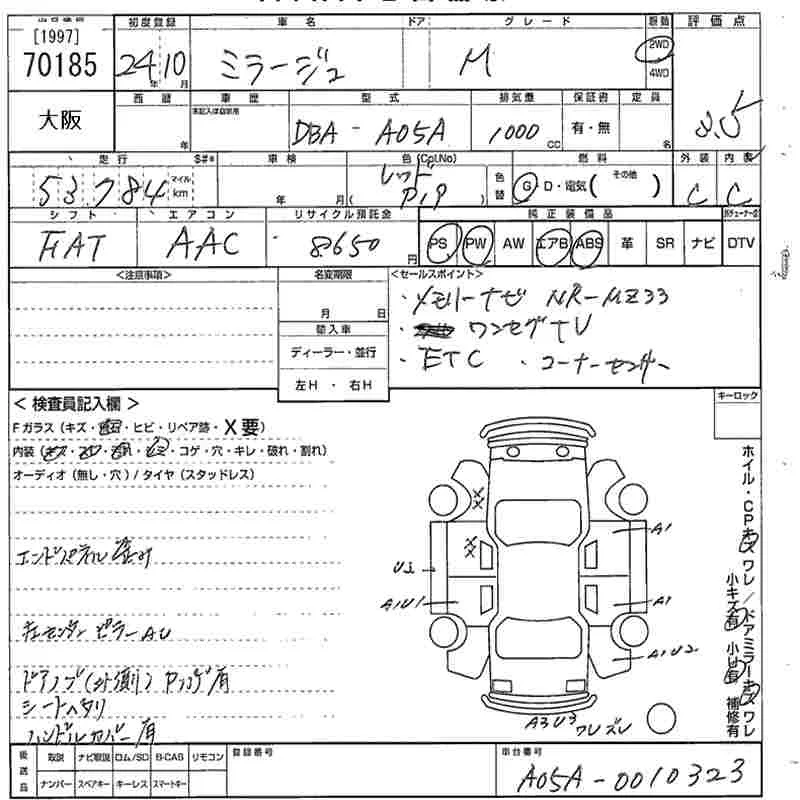 [1997]
70185
大阪
初度登録
24年10月
車名
ミラージュ
ドア
グレード
M
駆動
2WD
4WD
評価点
3.5
西暦
年
車歴
未記入は自家用
型式
DBA-A05A
排気量
1000cc
保証書
有・無
定員
名
走行
S#*
53,784
マイル
km
車検
年 月
色(Col.No)
レッド
( P19 )
色替
燃料
G・D・電気( その他 )
外装
C
内装
C
シフト
FAT
エアコン
AAC
リサイクル預託金
8650円
純正装備品
PS PW AW エアB ABS 革 SR ナビ DTV
<注意事項>
名変期限
月 日
輸入車
ディーラー・並行
左H ・ 右H
<セールスポイント>
・メモリーナビ NR-MZ33
・ワンセグTV
・ETC ・コーナーセンサー
＜検査員記入欄＞
キーロック
Fガラス(キズ・・ヒビ・リペア跡・X要)
内装(・コゲ・穴・キレ・破れ・割れ)
オーディオ(無し・穴)/タイヤ(スタッドレス)
エンドパネル
センターピラーAU
ドアノブ(外側)
シートヘタリ
ハンドルカバー有
XX
XX
U3
A1U1
A1
A1
A1U2
A3U3
ワレズレ
ホイル・CPキズワレ/ドアミラーキズワレ
小キズ有 小U有 補修有
後送品
取説 ナビ取説 ロム/SD B-CAS リモコン
ナンバー スペアキー キーレス スマートキー
登録番号
車台番号
A05A-0010323